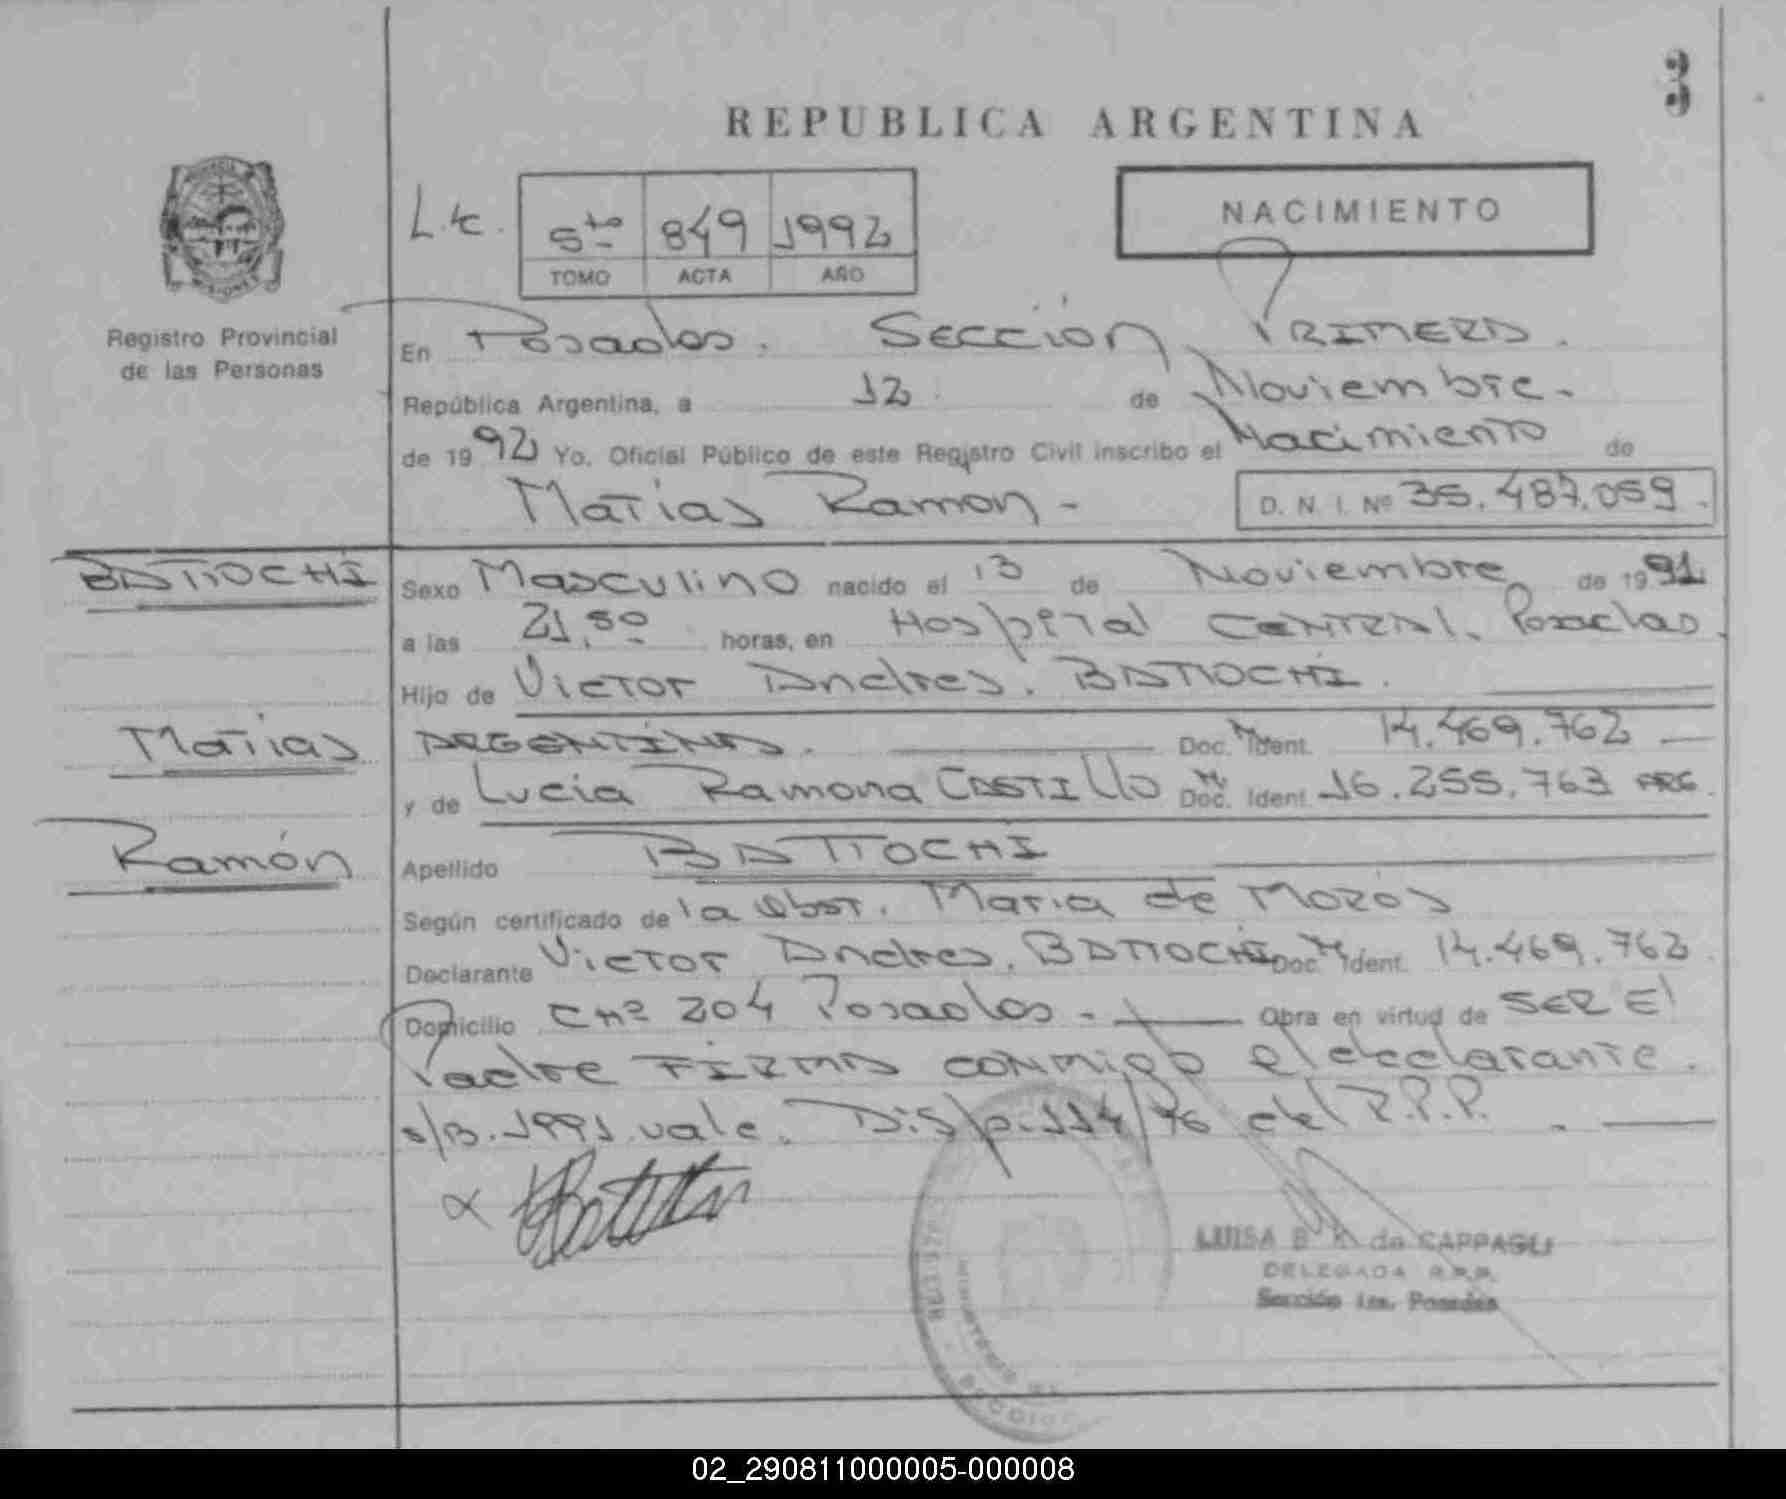 3
REPUBLICA ARGENTINA
L.c. 5to 849 1992
TOMO ACTA AÑO
NACIMIENTO
MISIONES
Registro Provincial
de las Personas
En Posadas. Sección PRIMERA.
República Argentina, a 12 de Noviembre.
de 1992 Yo, Oficial Público de este Registro Civil inscribo el Nacimiento de
Matias Ramon-
D. N. I. Nº 35.487.059.
BATIOCHI
Matias
Ramón
Sexo Masculino nacido el 13 de Noviembre de 1991
a las 21,50 horas, en Hospital CENTRAL. Posadas.
Hijo de Victor Andres. BATIOCHI.
ARGENTINA. Doc. Ident. 14.469.762
y de Lucia Ramona CASTIllo Doc. Ident 16.255.763 ARG.
Apellido BATIOCHI
Según certificado de la Obst. Maria de Mozos
Declarante Victor Andres. BATIOCHI Doc. Ident. 14.469.762.
Domicilio CHª 204 Posadas.- Obra en virtud de SER El
Padre FIRMA conmigo el declarante.
s/B. 1991 vale. Disp. 114/76 del R.P.P.
x
LUISA B de CAPPAGLI
DELEGADA R.P.P.
Sección 1ra. Posadas
02_290811000005-000008